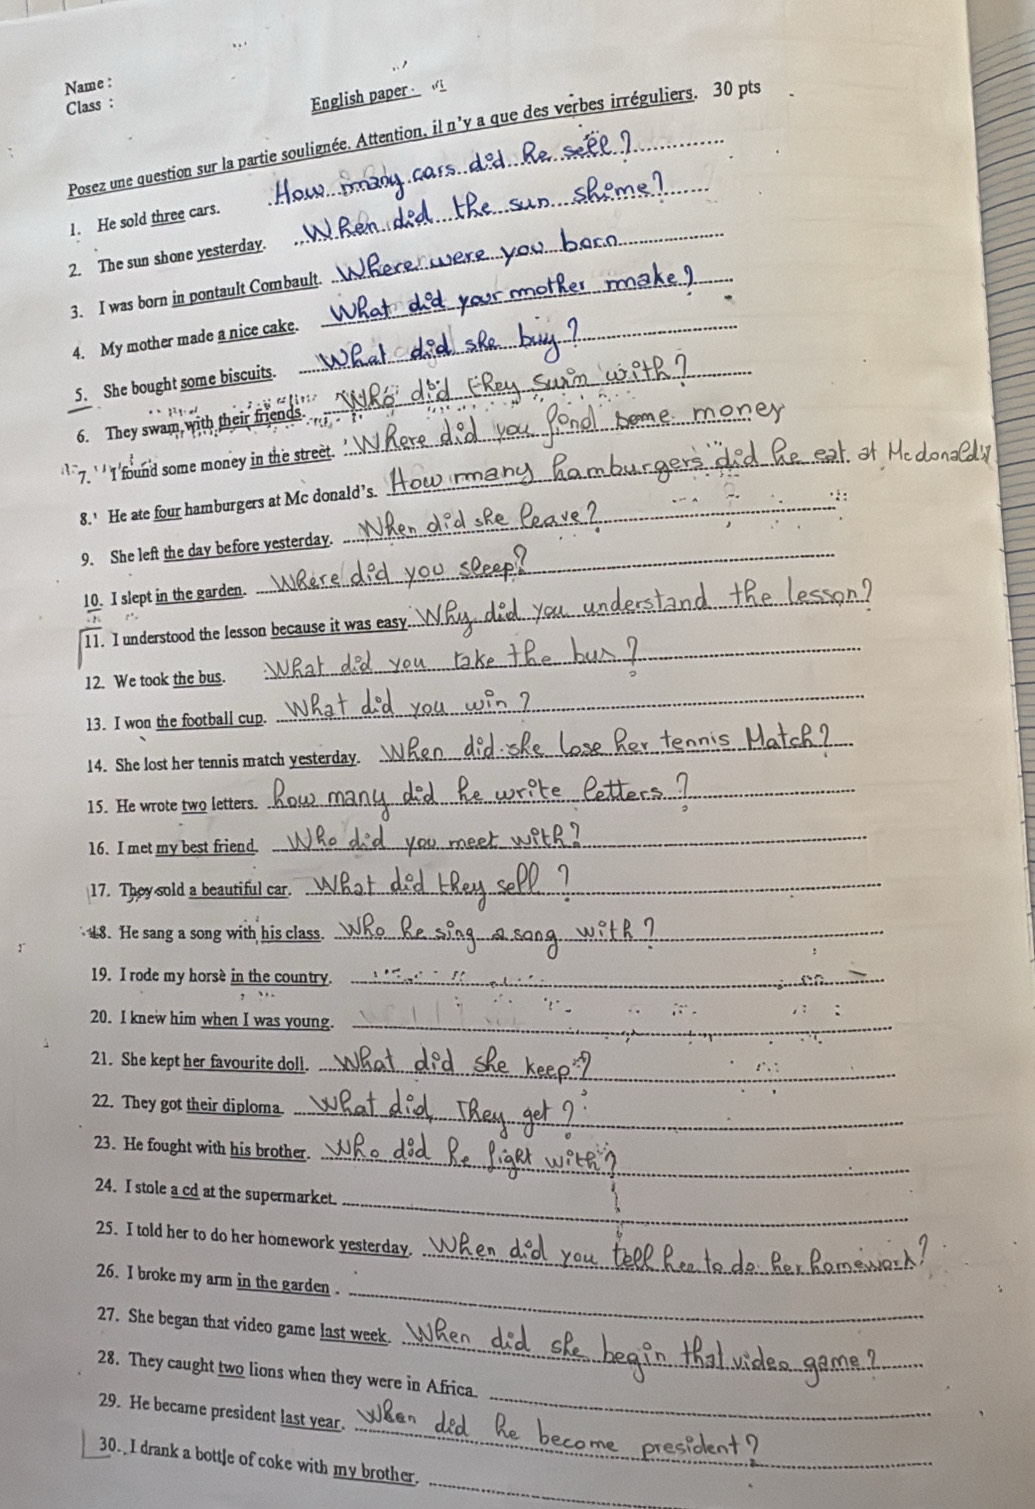 Name :
Class :
English paper
Posez une question sur la partie soulignée. Attention, il n'y a que des verbes irréguliers. 30 pts
1. He sold three cars. How many cars did he sell ?
2. The sun shone yesterday. When did the sun shime ?
3. I was born in pontault Combault. Where were you born
4. My mother made a nice cake. What did your mother make ?
5. She bought some biscuits. What did she buy ?
6. They swam with their friends. Who did they swim with ?
7. I found some money in the street. Where did you find some money
8. He ate four hamburgers at Mc donald's. How many hamburgers did he eat at Mcdonald's
9. She left the day before yesterday. When did she leave ?
10. I slept in the garden. Where did you sleep ?
11. I understood the lesson because it was easy. Why did you understand the lesson ?
12. We took the bus. What did you take the bus ?
13. I won the football cup. What did you win ?
14. She lost her tennis match yesterday. When did she lose her tennis Match ?
15. He wrote two letters. how many did he write letters ?
16. I met my best friend. Who did you meet with ?
17. They sold a beautiful car. What did they sell ?
18. He sang a song with his class. Who he sing a song with ?
19. I rode my horse in the country.
20. I knew him when I was young.
21. She kept her favourite doll. What did she keep ?
22. They got their diploma. What did They get ?
23. He fought with his brother. Who did he fight with ?
24. I stole a cd at the supermarket.
25. I told her to do her homework yesterday. When did you tell her to do her homework ?
26. I broke my arm in the garden .
27. She began that video game last week. When did she begin that video game ?
28. They caught two lions when they were in Africa.
29. He became president last year. When did he become president ?
30. I drank a bottle of coke with my brother.